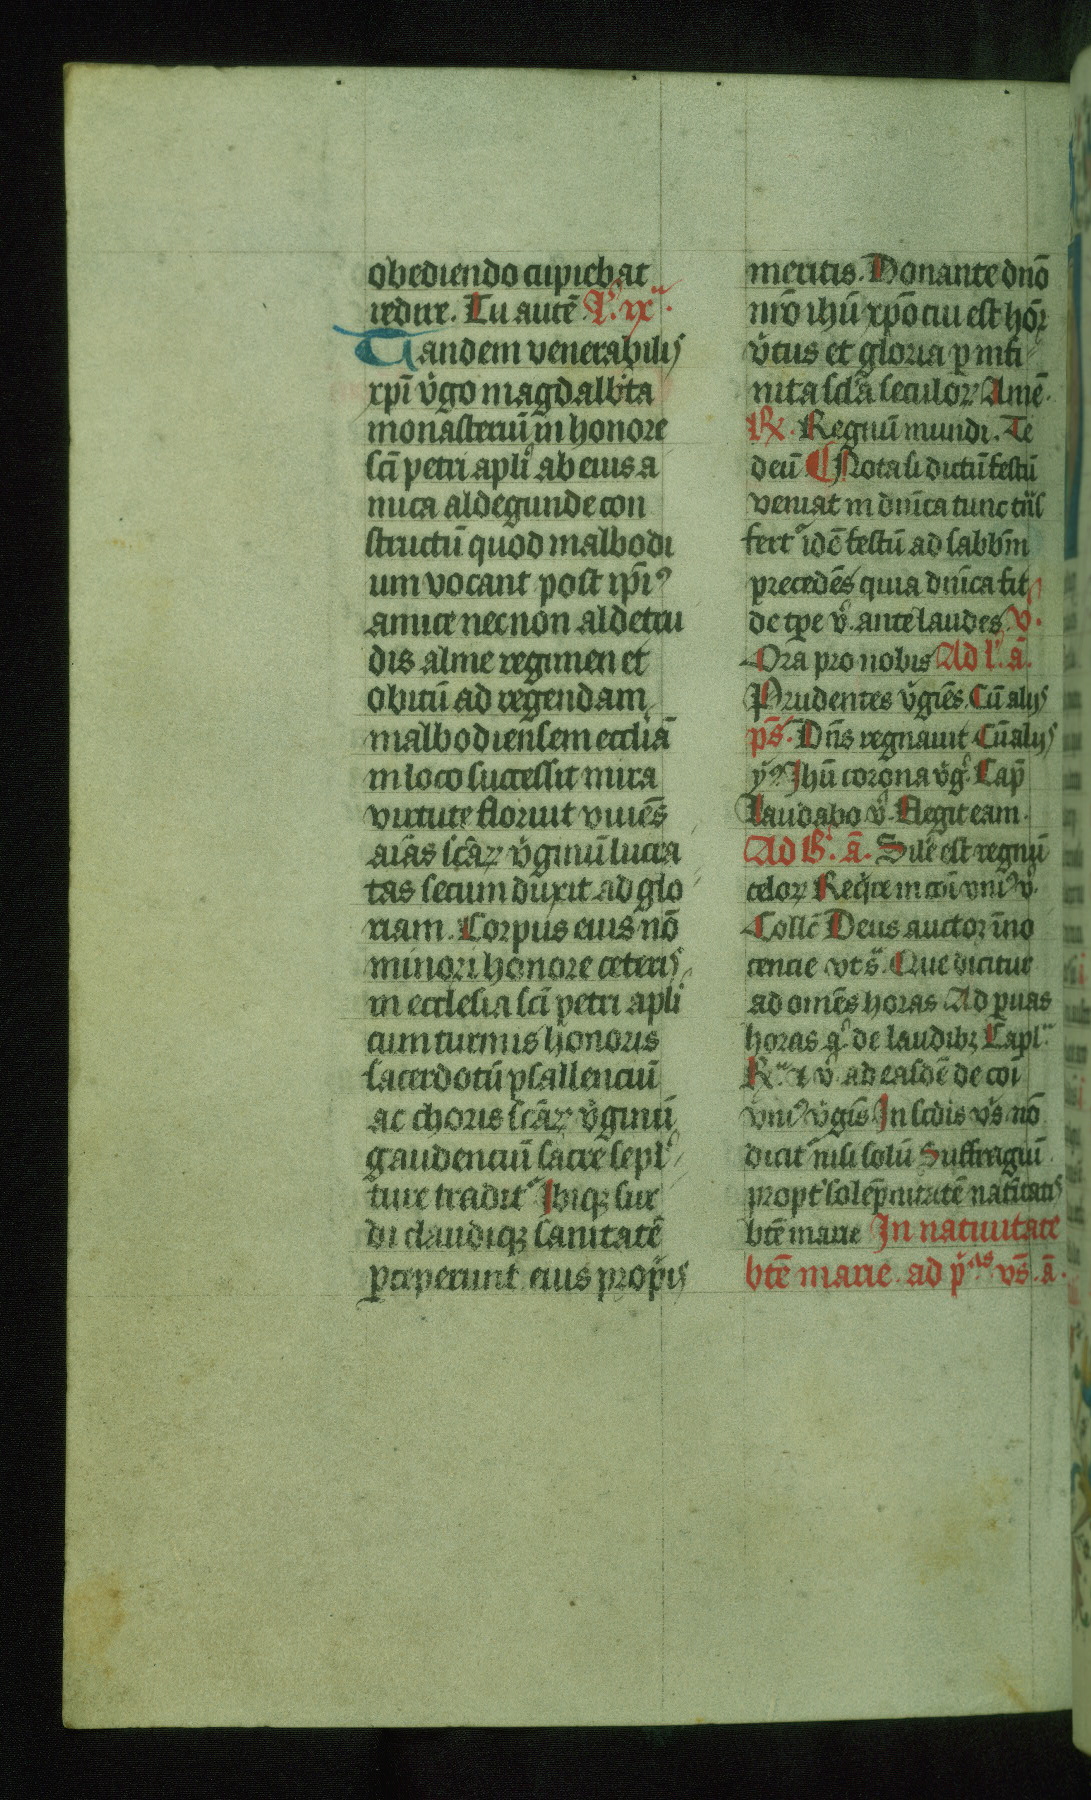 obediendo cupiebat
redire. Tu autē Lº. ixª.
Tandem venerabilis
xpi v̊go magdalb̄ta
monasteriū in honore
sc̄i petri apli ab eius a
mica aldegunde con
structū quod malbodi
um vocant post ip̄iꝰ
amice necnon aldetru
dis alme regimen et
obitū ad regendam
malbodiensem eccliā
in loco successit mira
virtute floruit viuēs
aīas scāꝝ v̊ginū lucra
tas secum duxit ad glo
riam. Corpus eius nō
minori honore ceteris
in ecclesia sc̄i petri apli
cum turmis honoris
sacerdotū psallenciū
ac choris scāꝝ v̊ginū
gaudenciū sacre sepl
ture tradit᷑ Ibiqꝫ sur
di claudiqꝫ sanitatē
ꝑceperunt eius propijs
meritis. Donante dn̄o
nr̄o ihū xp̄o cui est hōꝝ
v̊tus et gloria p infi
nita scl̄a seculoꝝ Amē.
℟. Regnū mundi. Te
deū ¶ Nota si dictū festū
veniat in dn̄ica tunc
fert᷑ idē festū ad sabb̄m
precedēs quia dn̄ica fit
de tp̄e v̊. ante laudes v̊.
Ora pro nobis Ad l. ā.
Prudentes v̊giēs Cū alijs
ps̄. Dn̄s regnauit Cū alijs
yꝰ Ihū corona v̊gͥ. Cap̄
Laudabo v̊. Elegit eam.
Ad B. ā. Sil̄e est regnū
celoꝝ Req̄re in cōi vniꝰ v̊.
Collc̄ Deus auctor īno
cencie vt sª. Que dicitur
ad omēs horas Ad ꝑuas
horas de laudibꝫ Capl
℟ª ⁊ v̊ ad easdē de coi
vniꝰ v̊gis In scdis vs̄ nō
dicit᷑ nisi solū Suffragiū
propt᷑ solēpnitatē natiuitatis
btē marie In natiuitate
btē marie. ad pͥas vs̄. ā.